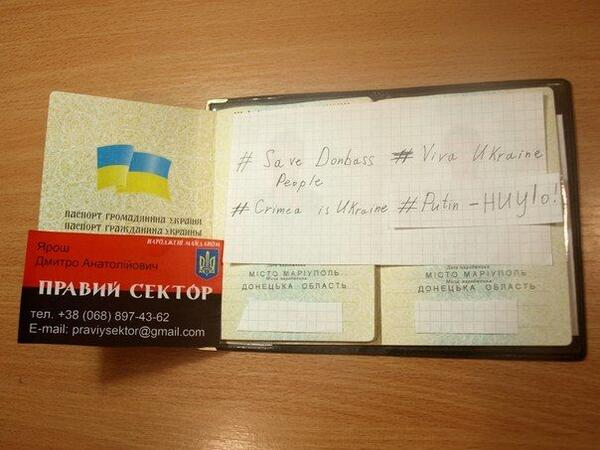 паспорт громадянина україни
паспорт гражданина украины
НАРОДЖЕНІ МАЙДАНОМ
Ярош
Дмитро Анатолійович
ПРАВИЙ СЕКТОР
тел. +38 (068) 897-43-62
E-mail: praviysektor@gmail.com
# Save Donbass
People
# Crimea is Ukraine
# Viva Ukraine
# Putin - НИУ1о!
МІСТО МАРІУПОЛЬ
ДОНЕЦЬКА ОБЛАСТЬ
МІСТО МАРІУПОЛЬ
Місце народження
ДОНЕЦЬКА ОБЛАСТЬ